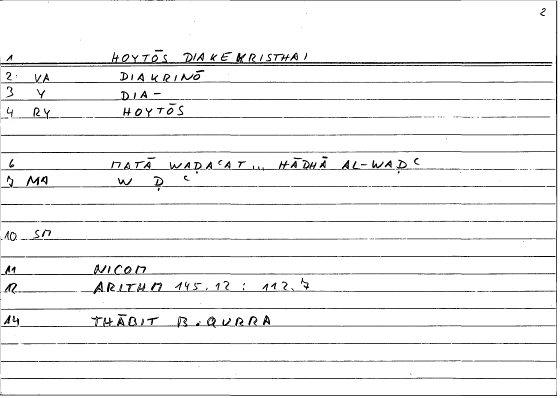 2
1 HOYTŌS DIAKEKRISTHAI
2 VA DIAKRINŌ
3 Y DIA-
4 RY HOYTŌS
6 MATĀ WAḌAʿAT ... HĀDHĀ AL-WAḌʿ
7 MA W Ḍ ʿ
10 SM
11 NICOM
12 ARITHM 145.12 : 112.7
14 THĀBIT B. QURRA